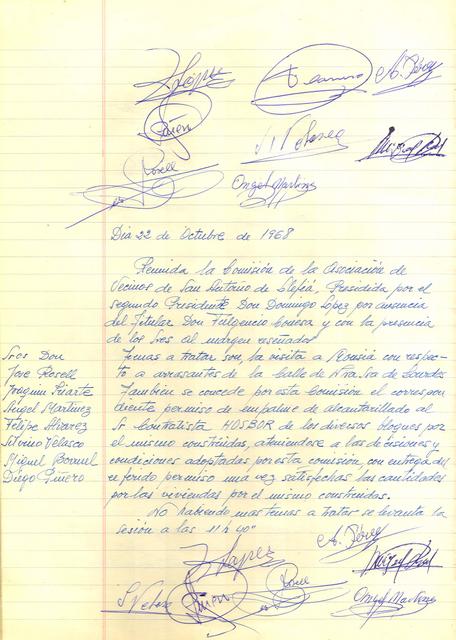 López
A. Pérez
Piñén
S. Velasco
Rosell
Angel Martinez
Dia 22 de Octubre de 1968
Reunida la Comisión de la Asociación de
Vecinos de San Antonio de Llefiá, Presidida por el
segundo Presidente Don Domingo Lopez por ausencia
del Titular Don Fulgencio Conesa y con la presencia
de los Sres al margen reseñados
Temas a tratar son, la visita a con respec-
to a arrasantes de la Calle de Ntra Sra de Lourdes
Tambien se concede por esta Comisión el correspon
diente permiso de empalme de alcantarillado al
Sr Contratista HOSBOR de los diversos bloques por
el mismo construidos, ateniendose a las decisiones y
condiciones adoptadas por esta comisión, con entrega del
referido permiso una vez satisfechas las cantidades
por las viviendas por el mismo construidas.
No habiendo mas temas a tratar se levanta la
sesión a las 11 h 40"
Sres Don
Jose Rosell
Joaquin Iriarte
Angel Martinez
Felipe Alvarez
Silvino Velasco
Miguel
Diego Piñero
A. Pérez
Lopez
S. Velasco
Piñén
Rosell
Angel Martinez